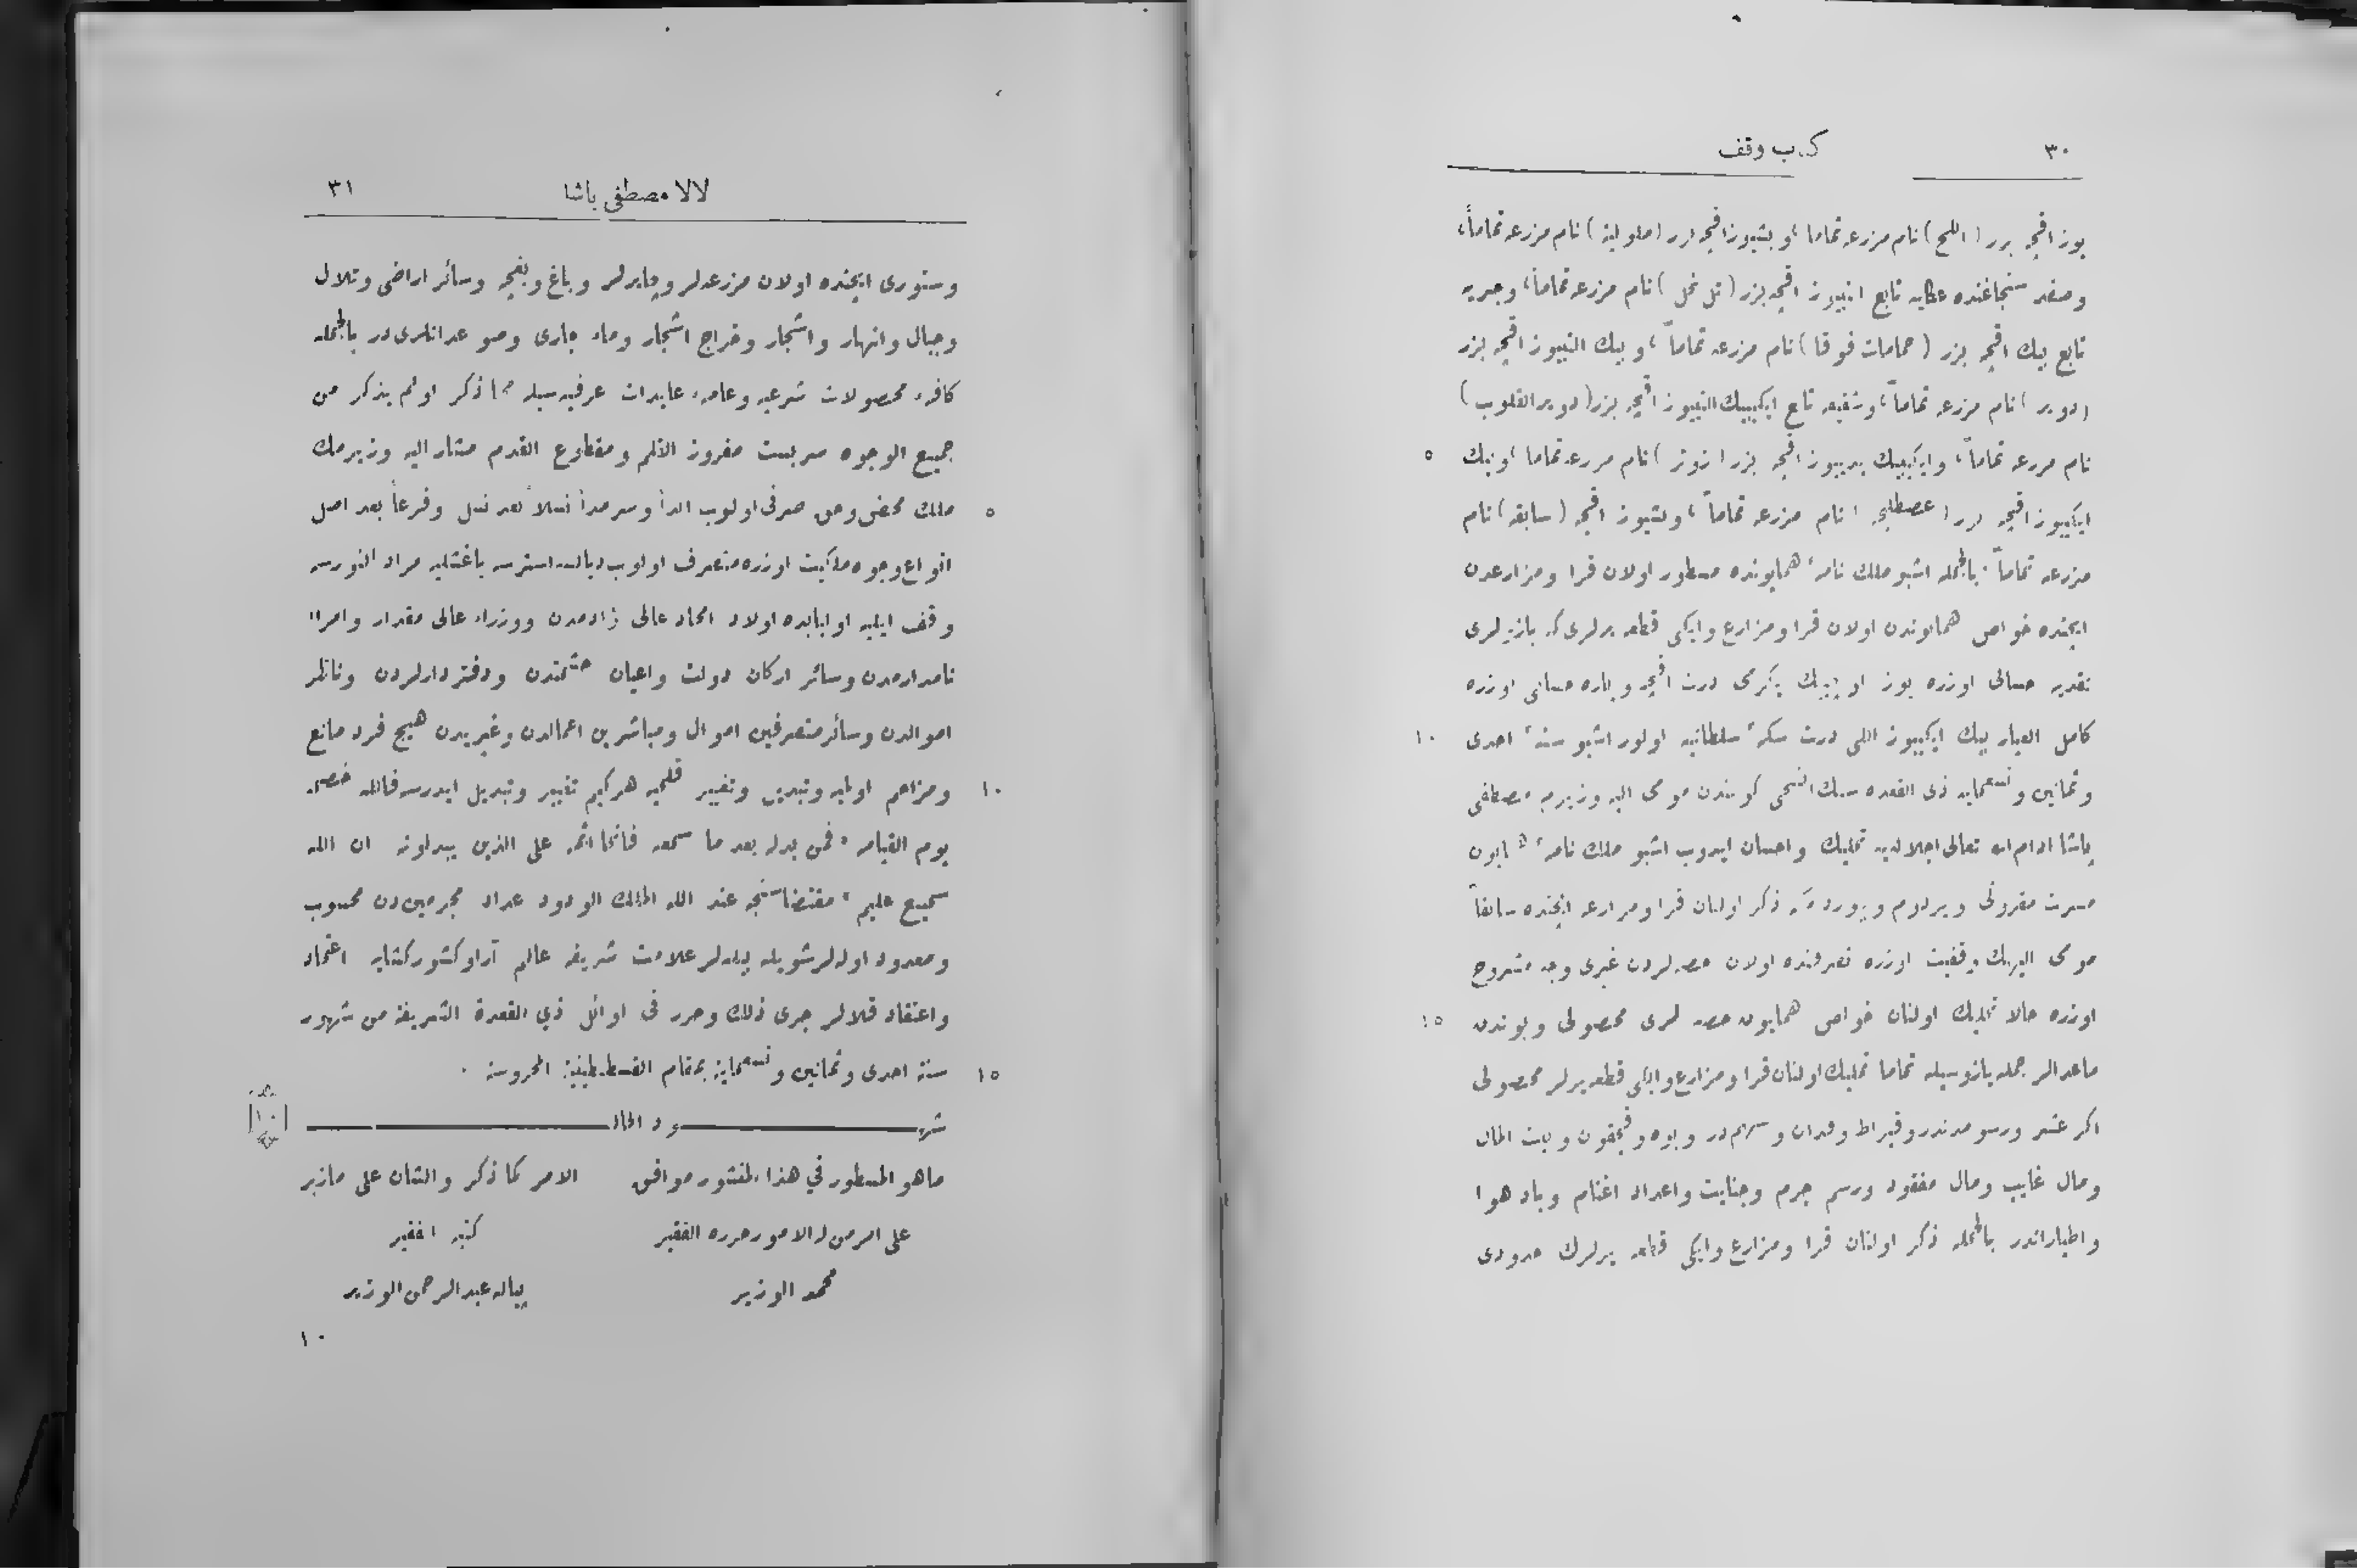 ٣٠
كتاب وقف
يوز اقچه يزر (اللح) نام مزرعه تماما، و بشيوز اقچه يزر (ملولية) نام مزرعه تماماً،
وصفد سنجاغنده عكايه تابع ايكييوز اقچه يزر (تل نحل) نام مزرعه تماماً، وجيره
تابع بيك اقچه يزر (حمامات فوقا) نام مزرعه تماماً، وبيك التيوز اقچه يزر
(دوير) نام مزرعه تماماً، وشقيفه تابع ايكيبيك التيوز اقچه يزر (دير القلوب)
نام مزرعه تماماً، وايكيبيك يدييوز اقچه يزر (زوتر) نام مزرعه تماما، وبيك
٥
ايكييوز اقچه يزر (عصطلبه) نام مزرعه تماماً، وبشيوز اقچه (سابقه) نام
مزرعه تماماً. بالجمله اشبو ملك نامهٔ همايونده مسطور اولان قرا ومزارعدن
ايچنده خواص همايوندن اولان قرا ومزارع وايكى قطعه يرلرى كه يازيلرى
نقديه حسابى اوزره يوز اوچبيك يكرمى درت اقچه وپاره حسابى اوزره
كامل العيار بيك ايكييوز اللى درت سكهٔ سلطانيه اولور اشبو سنهٔ احدى
١٠
وثمانين وتسعمايه ذى القعده سنك التنجى كونندن مومى اليه وزيرم مصطفى
پاشا ادام الله تعالى اجلاله يه تمليك واحسان ايدوب اشبو ملك نامهٔ همايون
مسرت مقرونى ويردم وبيوردم كه ذكر اولنان قرا ومزارعه ايچنده سابقاً
مومى اليهك وقفيت اوزره تصرفنده اولان حصه لردن غيرى وجه مشروح
اوزره حالا تمليك اولنان خواص همايون حصه لرى محصولى وبوندن
١٥
ماعدالر جمله يازوسيله تماما تمليك اولنان قرا ومزارع وايكى قطعه يرلر محصولى
اكر عشر ورسومدندر وقيراط وفدان وسهم در وبوه وقچقون وبيت المال
ومال غايب ومال مفقود ورسم جرم وجنايت واعداد اغنام وباد هوا
واطياراندر بالجمله ذكر اولنان قرا ومزارع وايكى قطعه يرلرك حدودى
لالا مصطفى باشا
٣١
وسنورى ايچنده اولان مزرعه لر وچايرلر وباغ وبغچه وسائر اراضى وتلال
وجبال وانهار واشجار وخراج اشجار وماء جارى وصو عدانلرى در بالجمله
كافهٔ محصولات شرعيه وعامهٔ عايدات عرفيه سيله مما ذكر اولم يذكر من
جميع الوجوه سربست مفروز القلم ومقطوع القدم مشار اليه وزيرمك
ملك محض وحق صرفى اولوب ابداً وسرمداً نسلاً بعد نسل وفرعاً بعد اصل
٥
انواع وجوه ملكيت اوزره متصرف اولوب ديالسه استرسه باغشليه مراد ايدنورسه
وقف ايليه اولبابده اولاد امجاد عالى نژادمدن ووزراء عالى مقدار وامراء
نامدارمدن وسائر اركان دولت واعيان حشمتدن ودفتردارلردن وناظر
اموالدن وسائر متصرفين اموال ومباشرين اعمالدن وغيريدن هيچ فرد مانع
ومزاحم اولميه وتبديل وتغيير قلميه هركيم تغيير وتبديل ايدرسه فالله خصمه
١٠
يوم القيامه «فمن بدله بعد ما سمعه فانما اثمه على الذين يبدلونه ان الله
سميع عليم» مقتضاسنجه عند الله الملك الودود عداد مجرمين دن محسوب
ومعدود اوله لر شويله بيله لر علامت شريفه عالم آرا وكشور كشايه اعتماد
واعتقاد قلالر جرى ذلك وحرر فى اوائل ذي القعدة الشريفة من شهور
سنة احدى وثمانين وتسعماية بمقام القسطنطينية المحروسة .
١٥
شهود الحال
[١٠]
ماهو المسطور في هذا المنشور موافق    الامر كما ذكر والشان على مازبر
على امر من له الامور حرره الفقير    كتبه الفقير
محمد الوزير    پياله عبد الرحمن الوزير
١٠